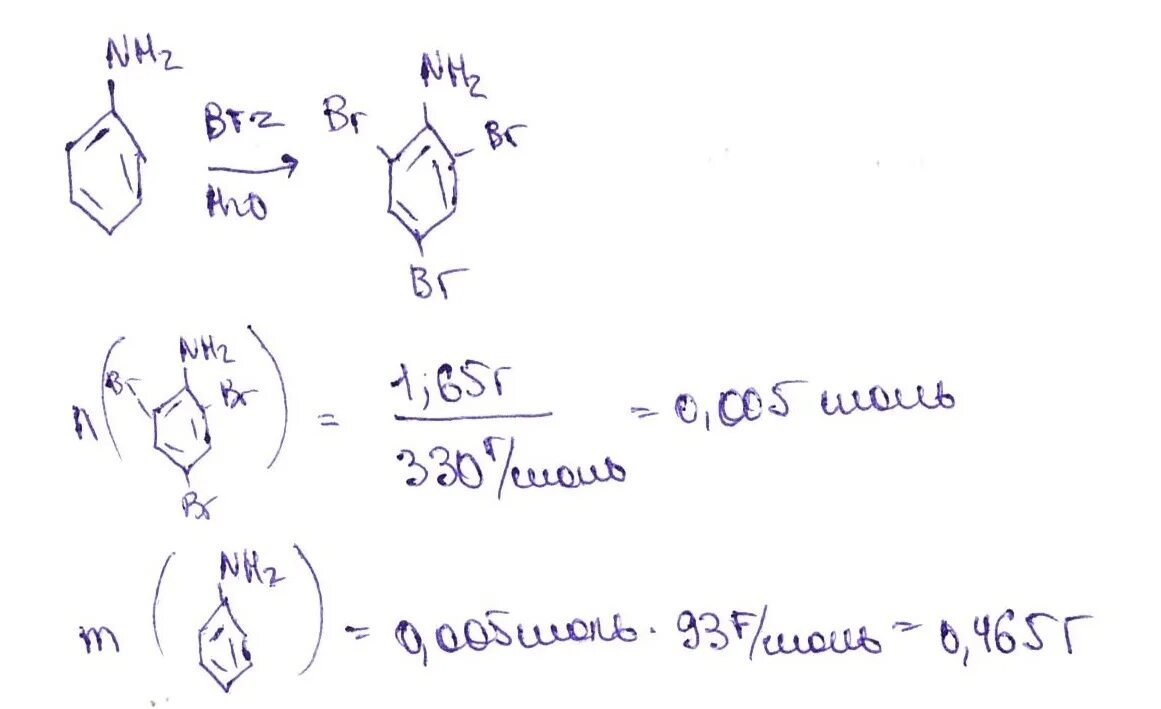 NH2
Br2
H2O
NH2
Br
Br
Br
n ( NH2 Br Br Br ) = 1,65г / 330 г/моль = 0,005 моль
m ( NH2 ) = 0,005моль · 93 г/моль = 0,465г